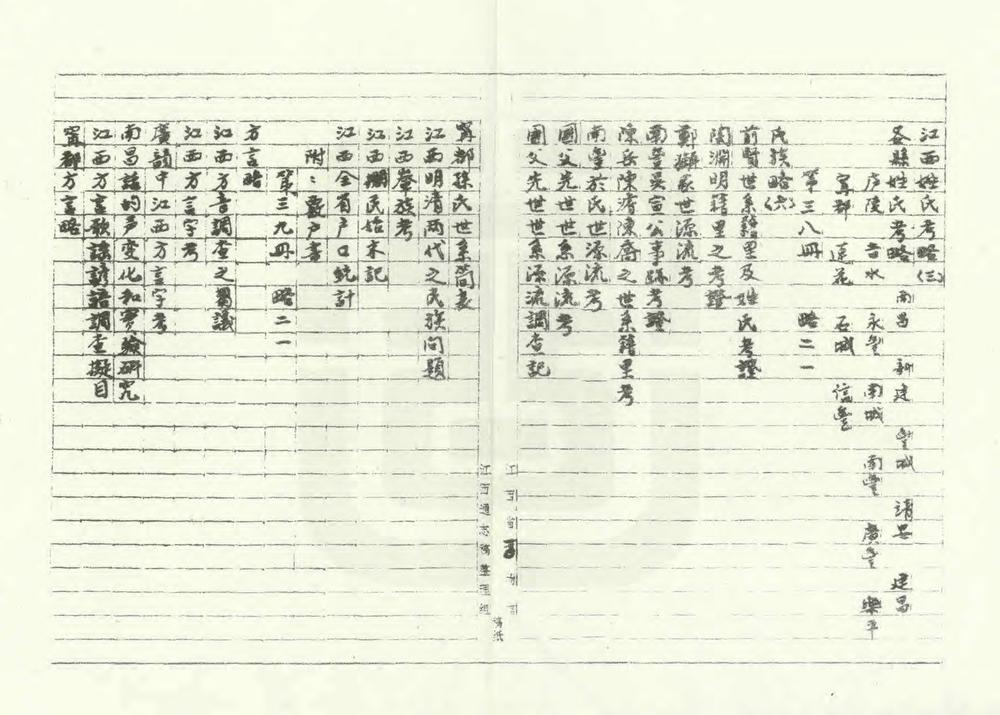 江西姓氏考略(三)
各縣姓氏考略 南昌 新建 豐城 靖安 建昌
庐陵 吉水 永豐 南城 南豐 廣豐 樂平
寧都 蓮花 石城 信豐
第三八冊 略二一
氏族略(六)
前賢世系籍里及姓氏考證
陶淵明籍里之考證
鄭獬家世源流考
南豐吳宣公事跡考證
陳岳陳濟陳喬之世系籍里考
南豐於氏世源流考
國父先世世系源流考
國父先世世系源流調查記
寧都孫氏世系簡表
江西明清兩代之民族问題
江西畲族考
江西棚民始末記
江西全省户口統計
附：嚴户書
第三九冊 略二二
方言略
江西方音調查之芻議
江西方言字考
廣韻中江西方言字考
南昌話的声变化和實驗研究
江西方言歌謠諺語調查擬目
寧都方言略
江西通志稿整理組
稿紙